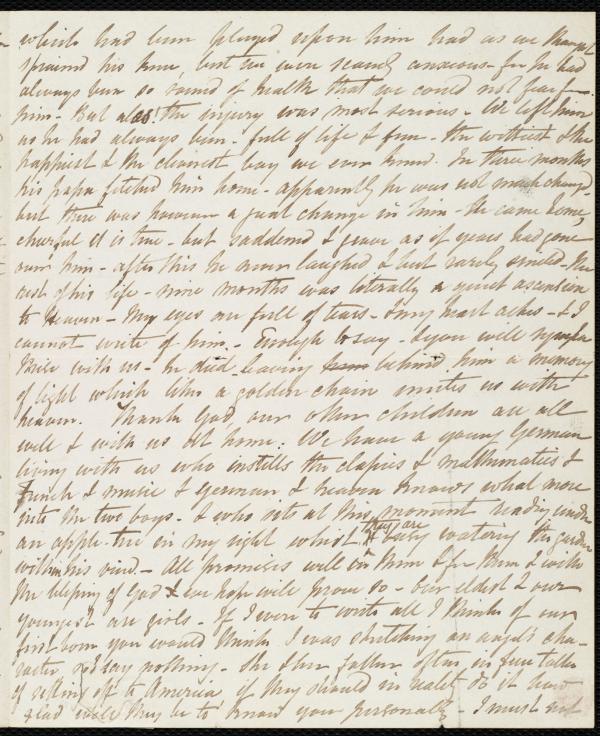 which had been played upon him had as we thought
sprained his knee but we were scarcely anxious - for he had
always been so sound of health that we could not fear for
him - But alas! the injury was most serious - We left him
as he had always been - full of life & fun - the wittiest & the
happiest & the cleverest boy we ever knew. In three months
his papa fetched him home - apparently he was not much changed,
but there was however a great change in him - He came home,
cheerful it is true - but saddened & grave as if years had gone
over him - after this he never laughed & but rarely smiled - the
rest of his life - nine months was literally a quiet ascension
to Heaven - My eyes are full of tears - & my heart aches - & I
cannot write of him. - Enough to say - & you will
with us - he died leaving behind him a memory
of light which like a golden chain unites us with
heaven. Thank God, our other children are all
well & with us at home. We have a young German
living with us who instills the classics & mathematics &
French & music & German & heaven knows what more
into the two boys - & who sits at this moment reading under
an apple-tree in my sight whilst they are busy watering the garden
within his view. - All promises well in them & for them & with
the blessing of God & we hope will prove so - our eldest & our
youngest are girls - If I were to write all I think of our
first born you would think I was sketching an angel's cha-
racter so I say nothing - She & her father often in fun talk
of setting off to America if they should in reality do it how
glad will they be to know you personally - I must not